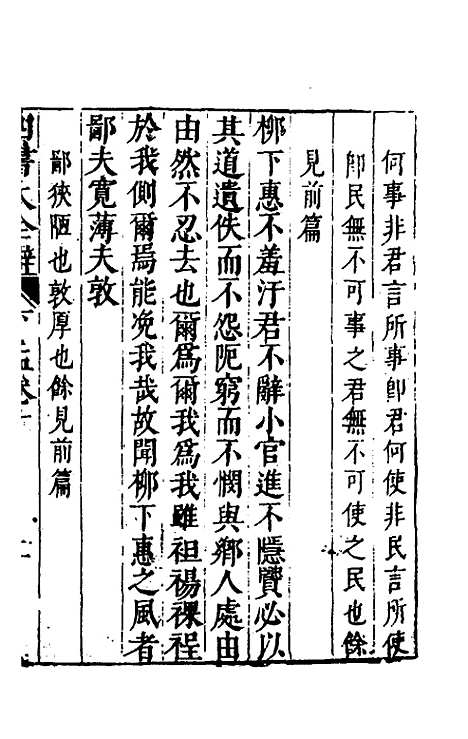 何事非君言所事卽君何使非民言所使
卽民無不可事之君無不可使之民也餘
見前篇
柳下惠不羞汙君不辭小官進不隱賢必以
其道遺佚而不怨阨窮而不憫與鄉人處由
由然不忍去也爾爲爾我爲我雖袒裼裸裎
於我側爾焉能浼我哉故聞柳下惠之風者
鄙夫寬薄夫敦
鄙狹陋也敦厚也餘見前篇
四書大全辯